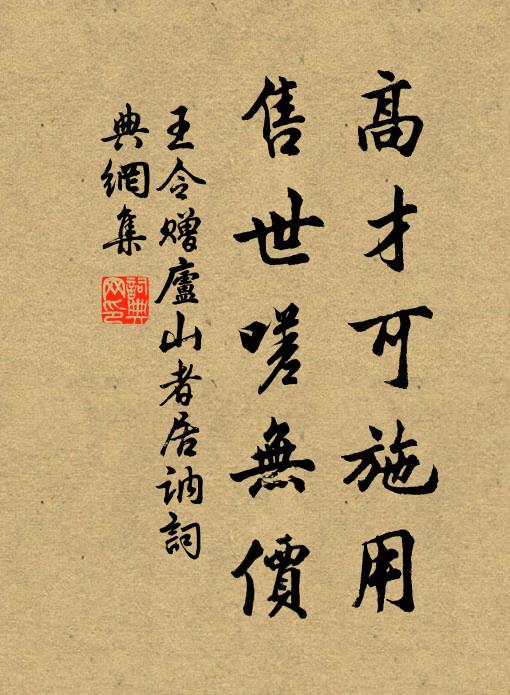 高才可施用
售世嗟無價
王令贈廬山者居訥詞
典網集
詞典網印